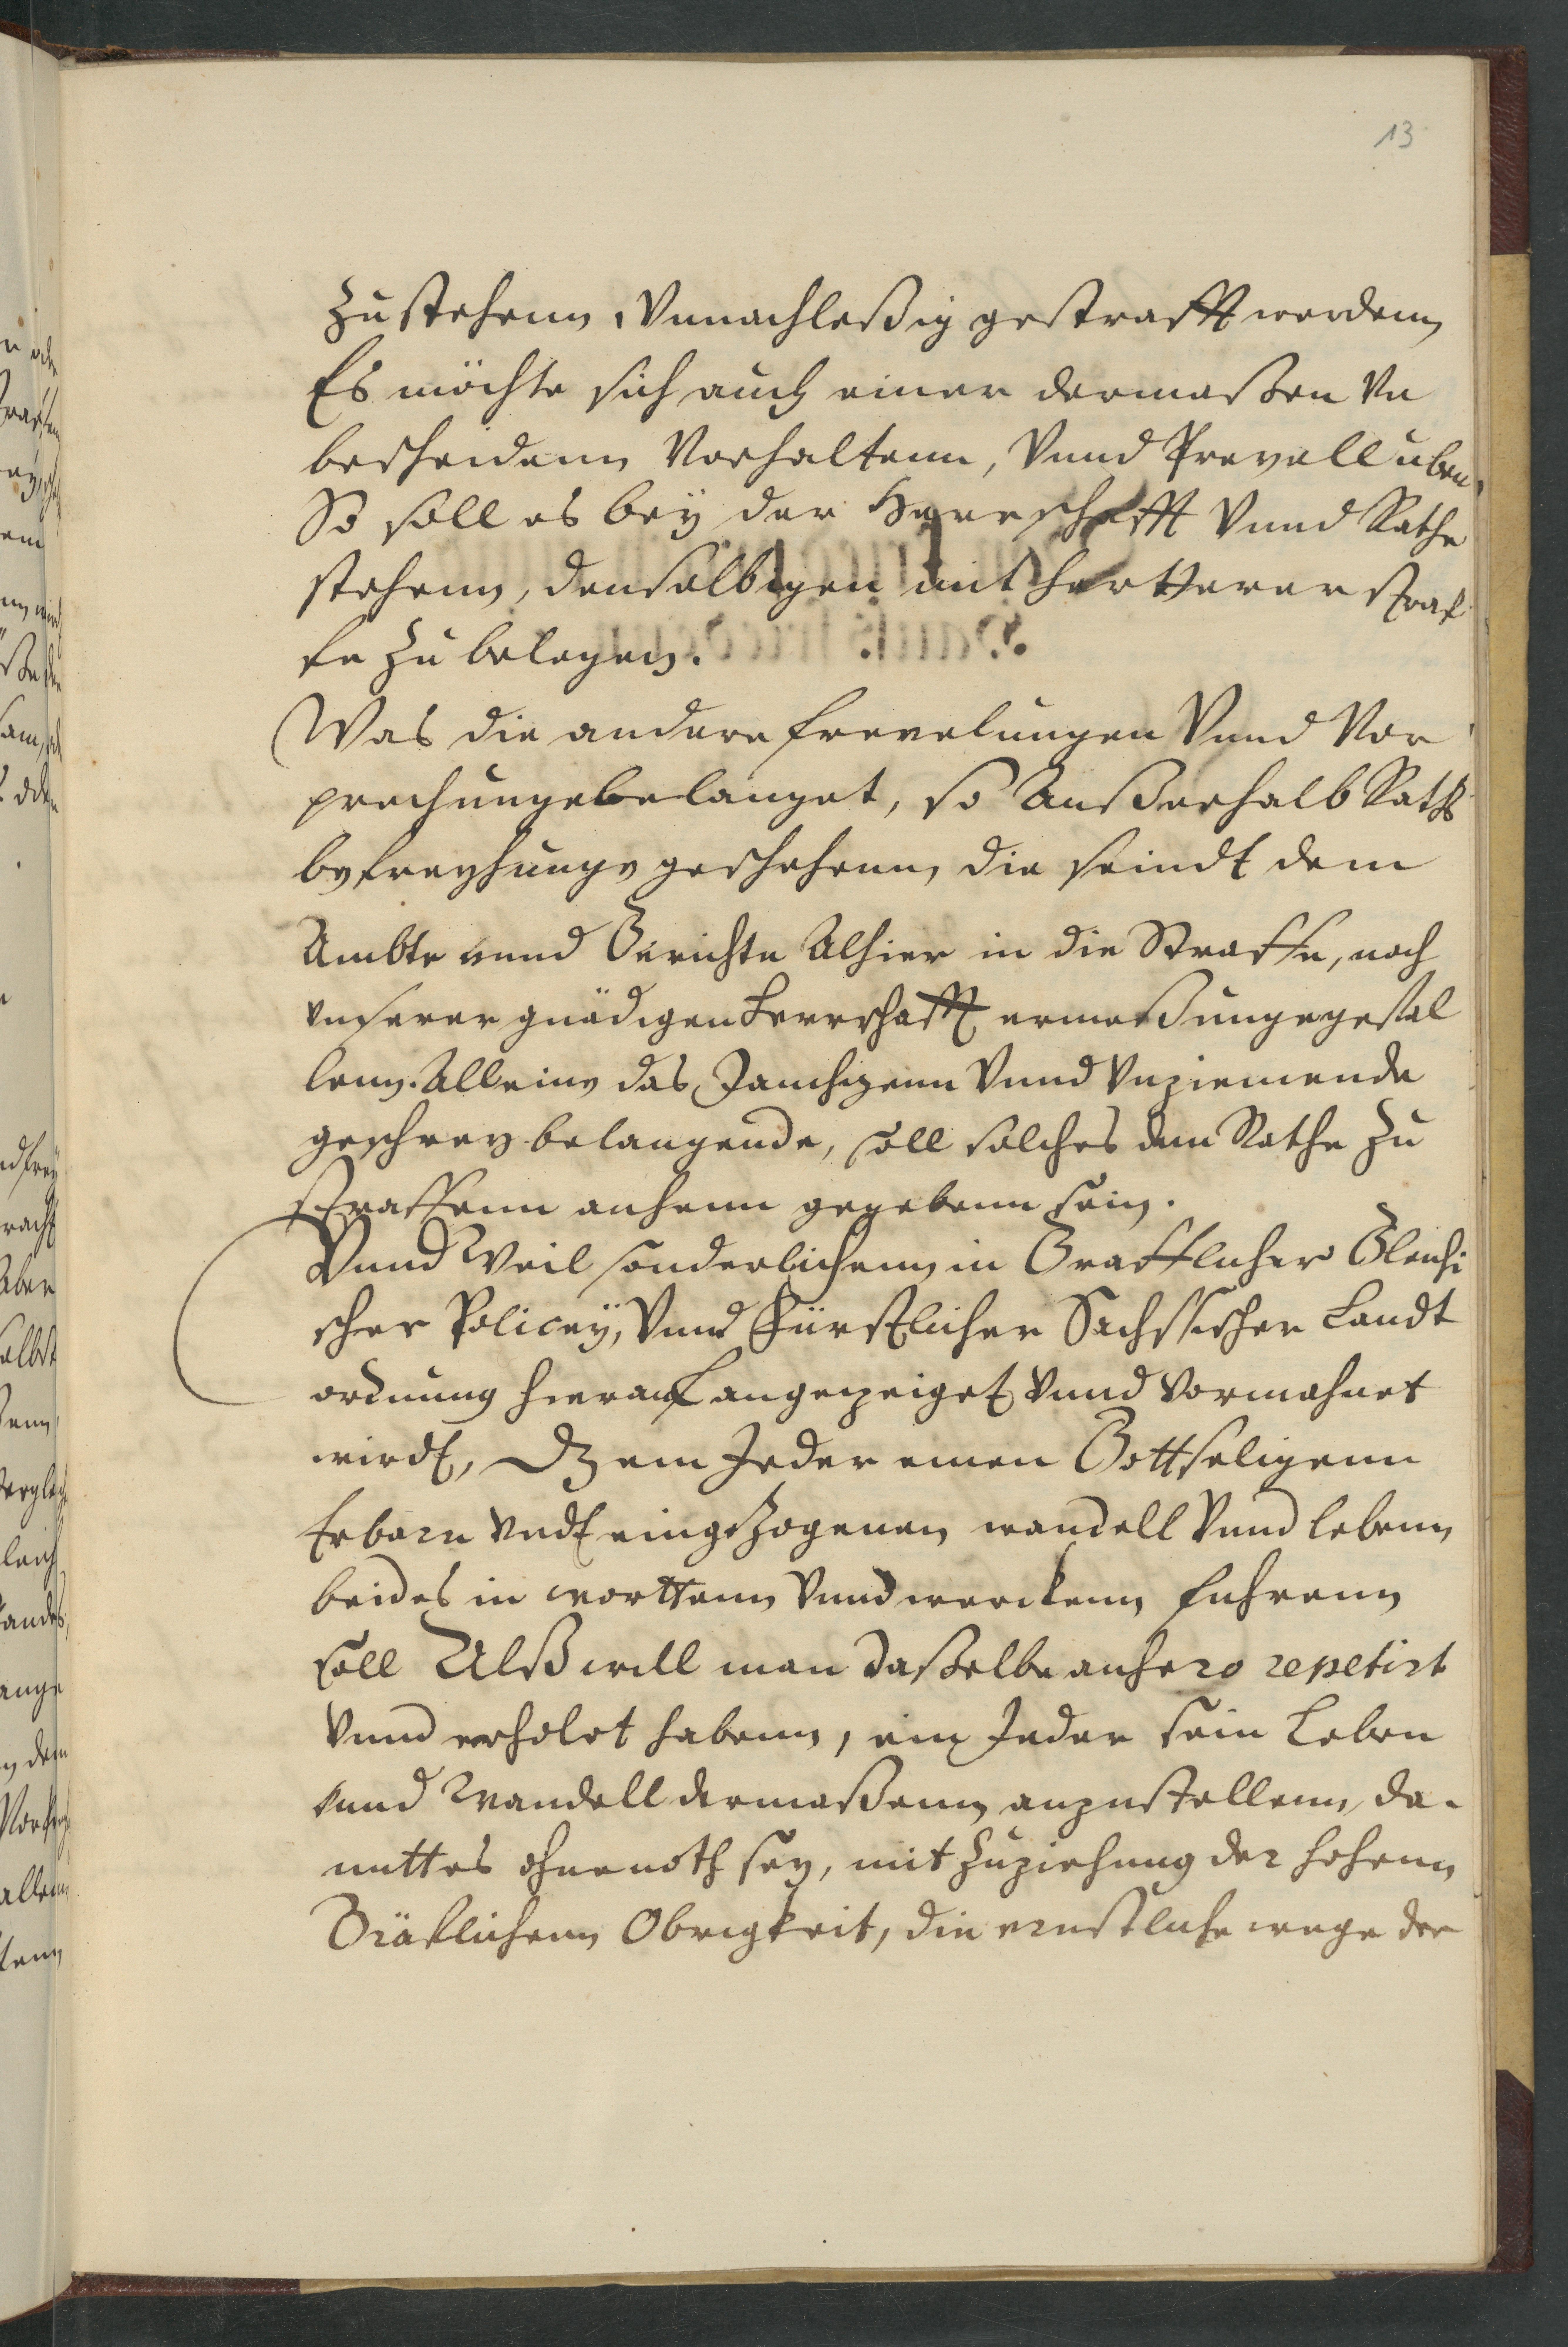 13
Zustehenn, Vnnachleßig gestrafft werdenn
Es möchte sich auch einer dermaßen Vn
bescheidenn Vorhaltenn, Vnnd Frevell uben,
So soll es bey der Herrschafft Vnnd Rathe
stehenn, denselbigen mit hartterer straf
fe Zu belegen.
Was die andere frevelungen Vnnd Vor
prechunge belanget, so Außerhalb Raths
befreyhunge geschehenn, die seindt dem
Ambte vnnd Gerichte Alhier in die Straffe, nach
vnserer gnädigen Herrschafft ermeßunge gefal
lenn. Alleine das Jauchzenn Vnnd Vnziemende
geschrey belangende, soll solches dem Rathe Zu
straffenn anheim gegebenn sein.
Vnnd Weil sonderlichenn in Graffllicher Gleichi
scher Policey, Vnnd Fürstlicher Sächsischer Landt
ordnung hierauf angezeiget Vnnd Vormahnet
wirdt, Dz ein Jeder einen Gottseligenn
Erbarn Vndt eingeZogenen wandell Vnnd lebenn
beides in worttenn Vnnd werckenn fuhrenn
soll Alß will man daßelbe anhero repetirt
Vnnd erholet habenn, ein Jeder sein Leben
vnnd Wandell dermaßenn anzustellenn, da-
mitt es ohne noth sey, mit Zuziehung der hohenn
Gräflichenn Obrigkeit, die ernstliche wege der